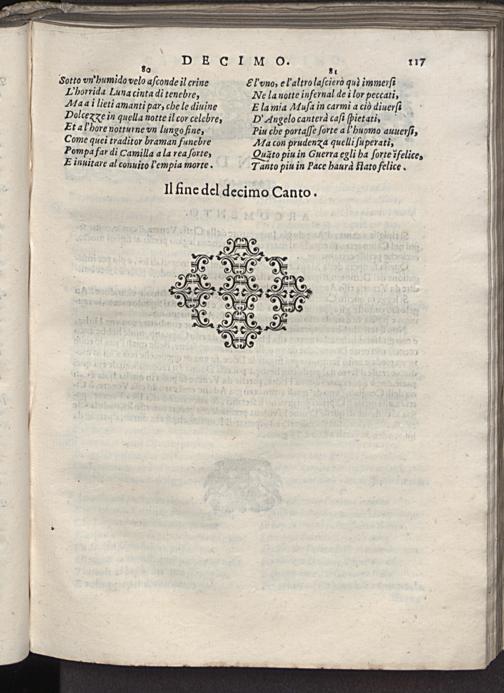 DECIMO. 117
80
Sotto vn'humido velo asconde il crine
L'horrida Luna cinta di tenebre,
Ma a i lieti amanti par, che le diuine
Dolcezze in quella notte il cor celebre,
Et a l'hore notturne vn lungo fine,
Come quei traditor braman funebre
Pompa far di Camilla a la rea sorte,
E inuitare al conuito l'empia morte.
81
E l'vno, e l'altro lasciero quì immersi
Ne la notte infernal de i lor peccati,
E la mia Musa in carmi a ciò diuersi
D'Angelo canterà casi spietati,
Piu che portasse sorte a l'huomo auuersi,
Ma con prudenza quelli superati,
Quãto piu in Guerra egli ha sorte ĩfelice,
Tanto piu in Pace haurà stato felice.
Il fine del decimo Canto.